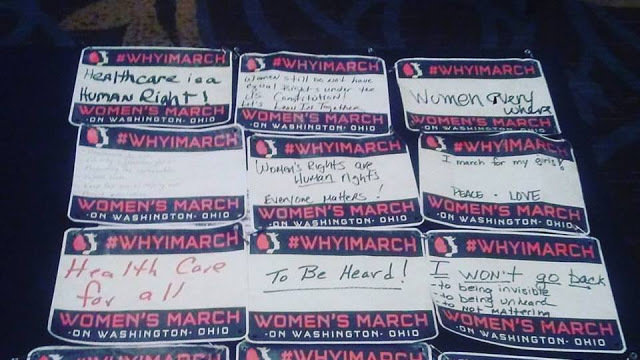 #WHYIMARCH
Healthcare is a
HUMAN Right!
WOMEN'S MARCH
·ON WASHINGTON· OHIO
#WHYIMARCH
Women still do not have
equal Rights under the
US Constitution!
Let's
Together
WOMEN'S MARCH
·ON WASHINGTON· OHIO
#WHYIMARCH
Women Every
where
WOMEN'S MARCH
·ON WASHINGTON· OHIO
#WHYIMARCH
WOMEN'S MARCH
·ON WASHINGTON· OHIO
#WHYIMARCH
Women's Rights are
Human rights
Everyone Matters!
WOMEN'S MARCH
·ON WASHINGTON· OHIO
#WHYIMARCH
I march for my girls!
PEACE · LOVE
WOMEN'S MARCH
·ON WASHINGTON· OHIO
#WHYIMARCH
Health Care
for all
WOMEN'S MARCH
·ON WASHINGTON· OHIO
#WHYIMARCH
To Be Heard!
WOMEN'S MARCH
·ON WASHINGTON· OHIO
#WHYIMARCH
I WON'T go back
- to being invisible
- to being unheard
- to NOT MATTERING
WOMEN'S MARCH
·ON WASHINGTON· OHIO
#WHYIMARCH
#WHYIMARCH